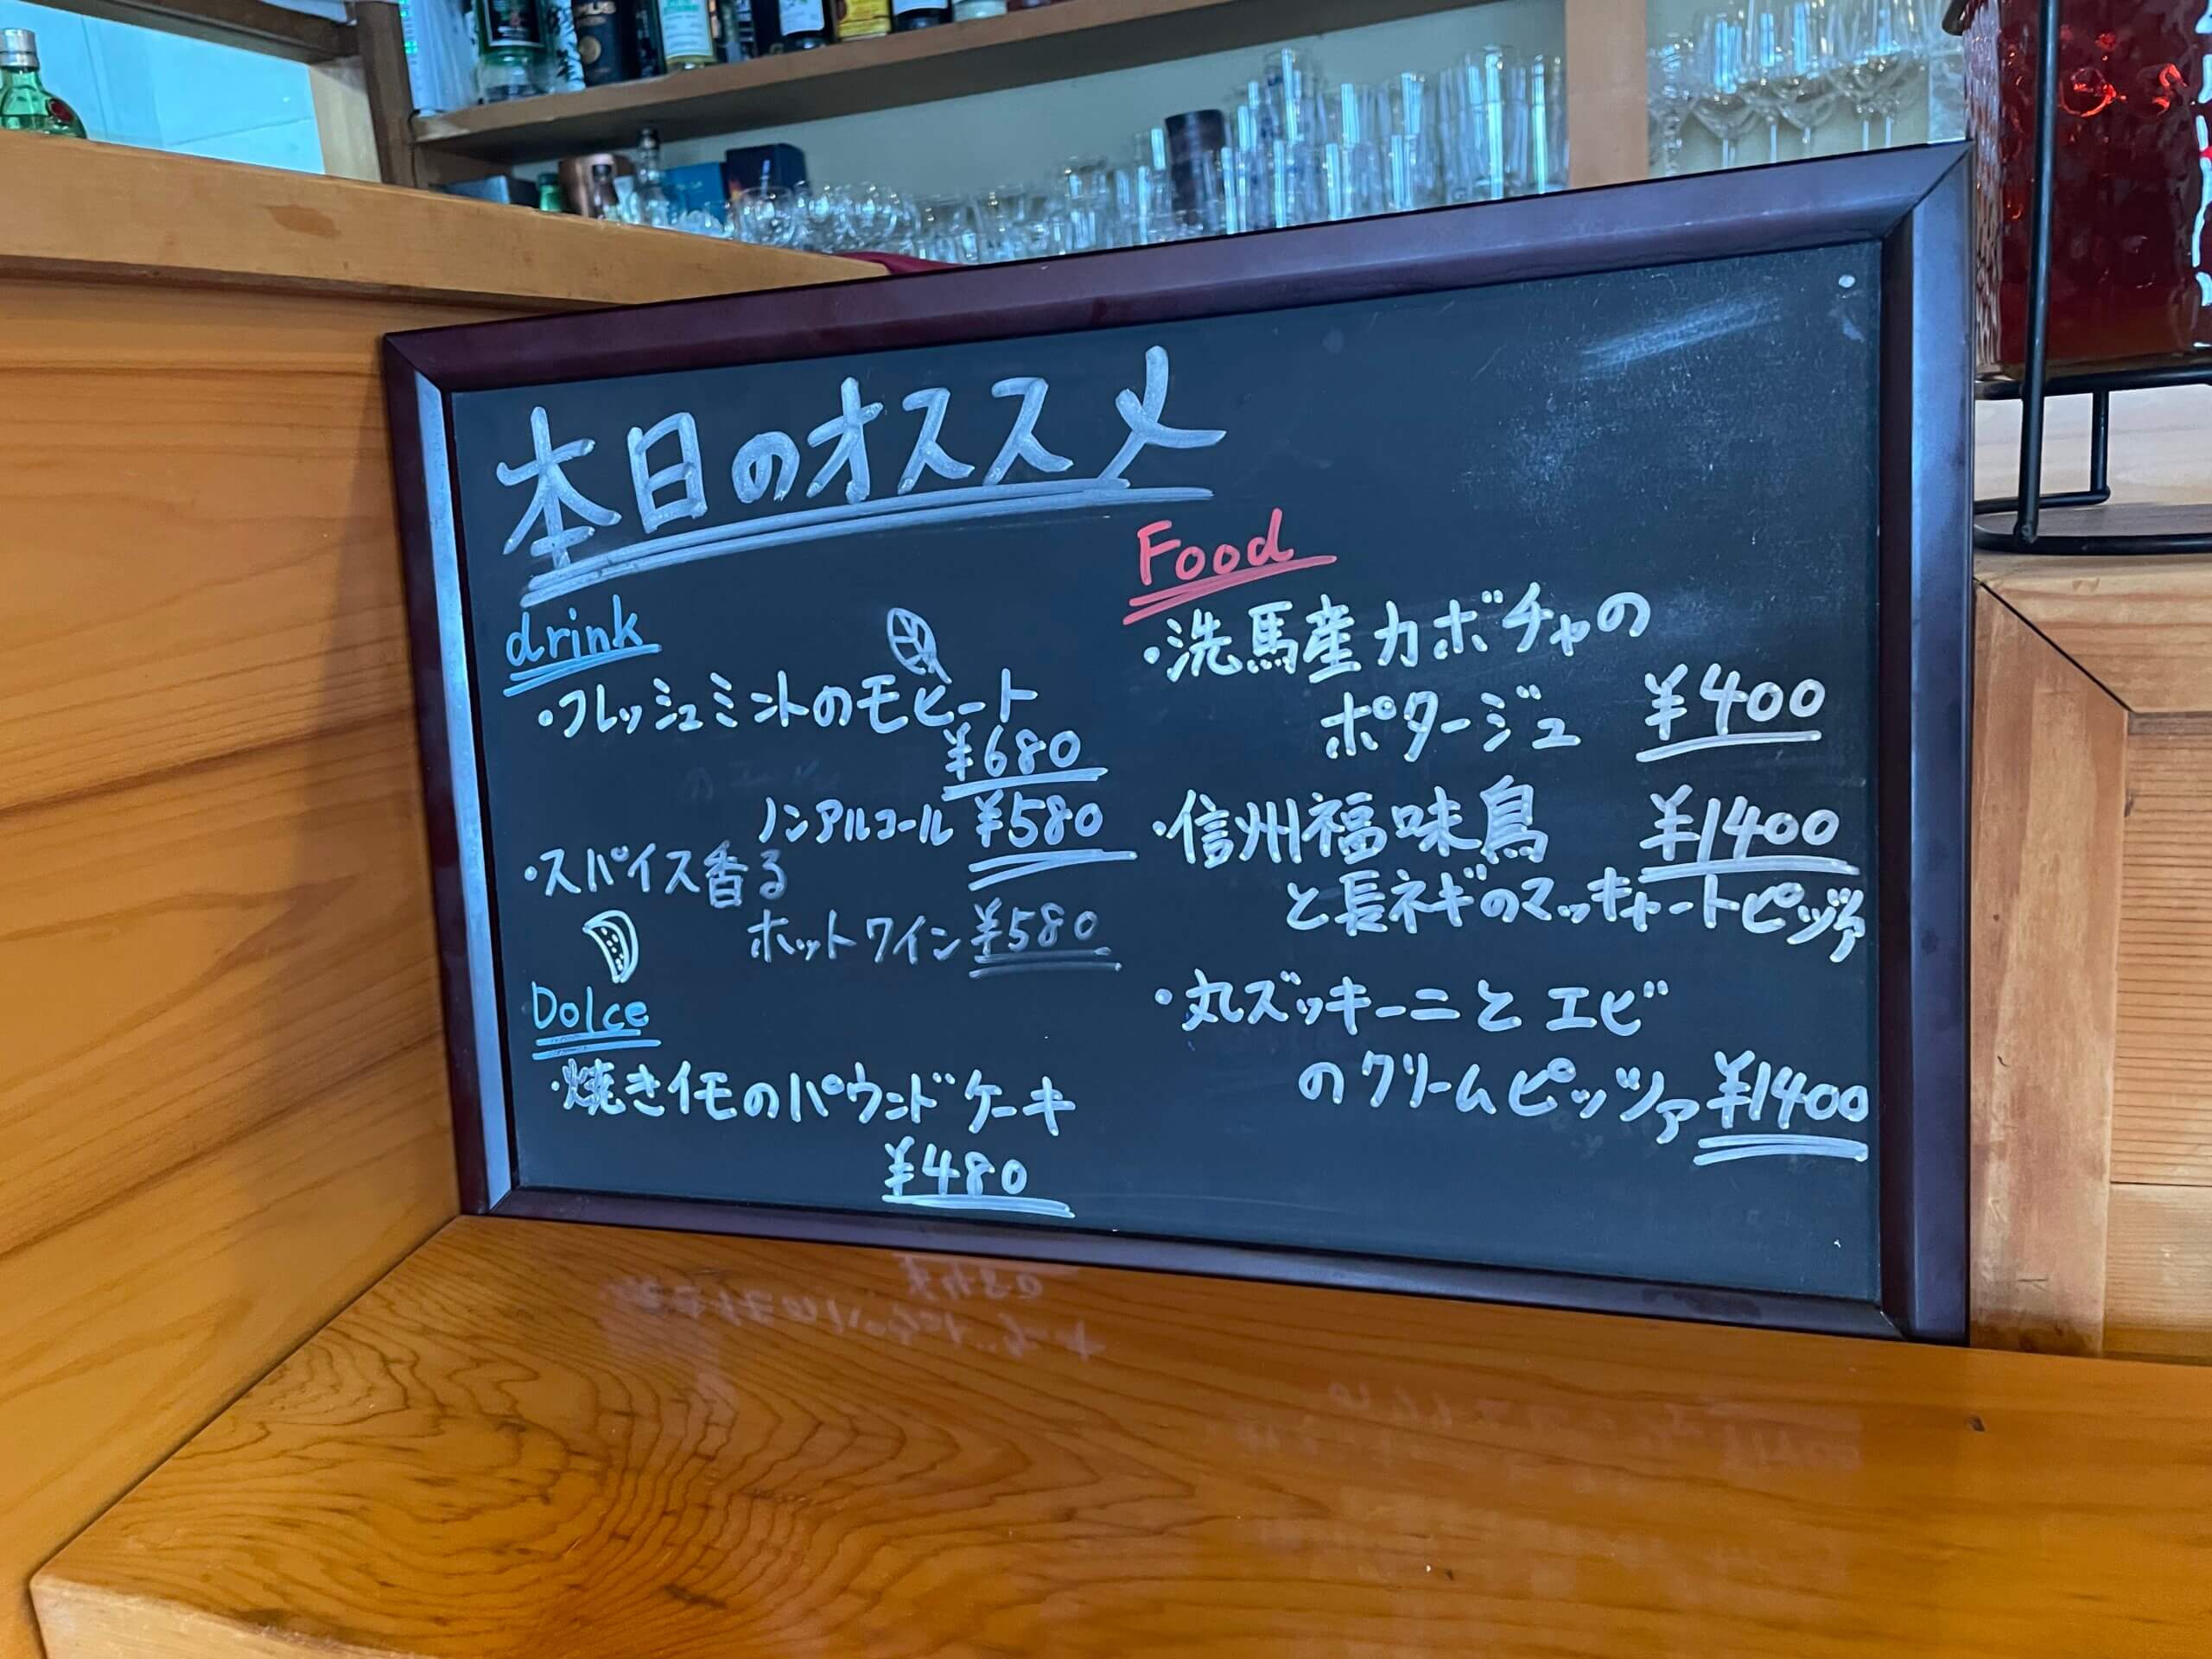 本日のオススメ
drink
・フレッシュミントのモヒート
¥680
ノンアルコール ¥580
・スパイス香る
ホットワイン ¥580
Dolce
・焼きイモのパウンドケーキ
¥480
Food
・洗馬産カボチャの
ポタージュ ¥400
・信州福味鳥 ¥1400
と長ネギのマッキャートピッツァ
・丸ズッキーニとエビ
のクリームピッツァ ¥1400